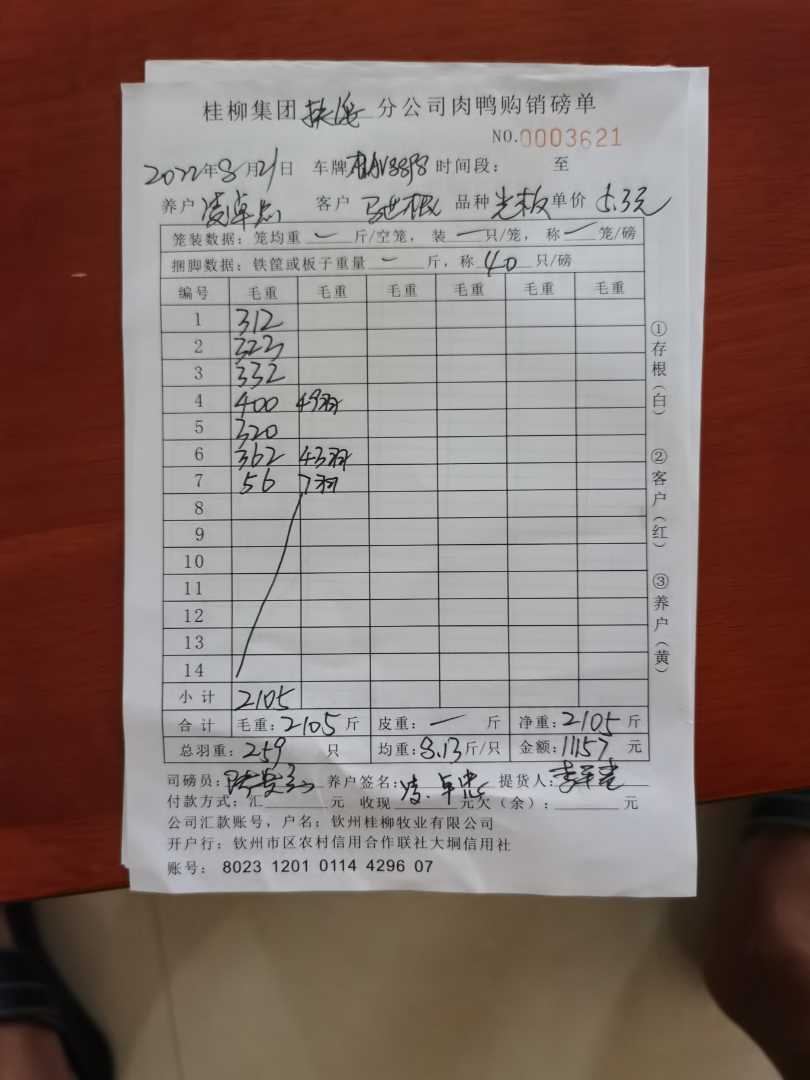 桂柳集团 分公司肉鸭购销磅单
NO.0003621
2022年8月21日 车牌 时间段： 至
养户 凌卓忠 客户 马世根 品种 光板 单价 5.3元
笼装数据：笼均重 一 斤/空笼，装 一 只/笼，称 一 笼/磅
捆脚数据：铁筐或板子重量 一 斤，称 40 只/磅
编号 毛重 毛重 毛重 毛重 毛重 毛重
1 312
2 323
3 332
4 400 49羽
5 320
6 362 43羽
7 56 7羽
8
9
10
11
12
13
14
小计 2105
合计 毛重：2105斤 皮重：一 斤 净重：2105斤
总羽重：259 只 均重：8.13斤/只 金额：11157 元
司磅员： 养户签名：凌卓忠 提货人：
付款方式：汇 元 收现 元欠（余）： 元
公司汇款账号，户名：钦州桂柳牧业有限公司
开户行：钦州市区农村信用合作联社大垌信用社
账号：8023 1201 0114 4296 07
①存根（白） ②客户（红） ③养户（黄）